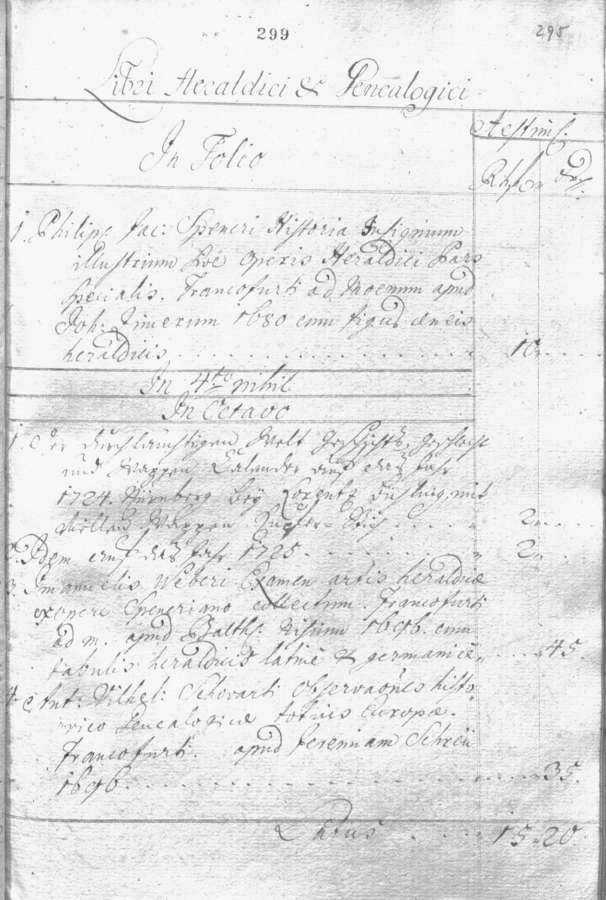 299
295
Libri Heraldici & Genealogici
Aestim.
In Folio
1. Philip: Jac: Speneri Historia Insignium
illustrium sive operis Heraldici Pars
specialis. Francofurti ad Moenum apud
Joh. 1680 cum figuris aeneis
heraldicis 10
In 4to nihil
In Octavo
1. Der durchläuchtigen Welt Geschichts, Geschlecht
und Wappen Calender auf das Jahr
1724. Nürnberg bey mit
Wappen Kupfer-Stich 2
2. Idem auf das Jahr 1725 2
3. Immanuelis Weberi Examen artis heraldicae
ex opere Speneriano collectum. Francofurti
ad m. apud 1696. cum
tabulis heraldicis latinè & germanicè 45
4. Ant: Wilhel: Schowarti Observationes histo
rico Genealogicae totius Europae.
Francofurti. apud Jeremiam
1696 35
Latus 15 20